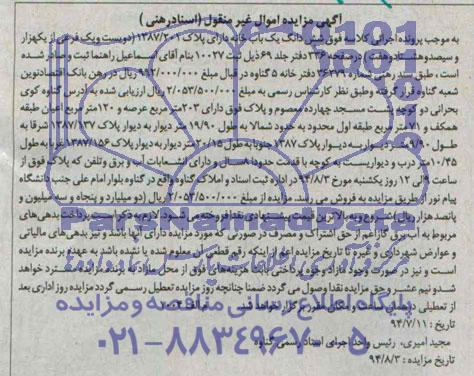 آگهی مزایده اموال غیر منقول (اسناد رهنی)
به موجب پرونده اجرایی کلاسه فوق شش دانگ یک باب خانه دارای پلاک ۱۳۸۷/۲۰۱ (دویست و یک فرعی از یکهزار
و سیصد و هشتاد و هفت) در صفحه ۳۳۶ دفتر جلد ۶۹ ذیل ثبت ۱۰۰۲۷ بنام آقای اسماعیل راهنما ثبت و صادر شده
است، طبق سند رهنی شماره ۳۶۲۷۹ دفتر خانه ۵ گناوه در قبال مبلغ ۹۹۲/۰۰۰/۰۰۰ ریال در رهن بانک اقتصاد نوین
شعبه گناوه قرار گرفته و طبق نظر کارشناس رسمی به مبلغ ۲/۰۵۳/۵۰۰/۰۰۰ ریال ارزیابی شده به آدرس گناوه کوی
بحرانی دو کوچه بیست مسجد چهارده معصوم و پلاک فوق دارای ۲۰۳ متر مربع عرصه و ۱۲۰ متر مربع اعیان طبقه
همکف و متر مربع طبقه اول محدود به حدود شمالا به طول ۱۹/۹۰ متر دیوار به دیوار پلاک ۱۳۸۷/۱۳۷ شرقا به
طول متر دیوار به دیوار پلاک ۱۳۸۷ جنوبا به طول ۲۰/۱۵ متر دیوار به دیوار پلاک ۱۳۸۷/۱۵۶ غربا به طول
۱۰/۴۵ متر درب و دیواریست به کوچه با قدمت حدود سال و دارای انشعابات آب و برق و تلفن که پلاک فوق از
ساعت ۹ الی ۱۲ روز یکشنبه مورخ ۹۴/۸/۳ در اداره ثبت اسناد و املاک گناوه واقع در گناوه بلوار امام علی جنب دانشگاه
پیام نور از طریق مزایده به فروش می رسد. مزایده از مبلغ ۲/۰۵۳/۵۰۰/۰۰۰ ریال (دو میلیارد و پنجاه و سه میلیون و
پانصد هزار ریال) شروع و به بالاترین قیمت پیشنهادی نقدا فروخته می شود. لازم به ذکر است پرداخت بدهی های
مربوط به آب برق گاز اعم از حق اشتراک و مصرف در صورتی که مورد مزایده دارای آنها باشد و نیز بدهی های مالیاتی
و عوارض شهرداری و غیره تا تاریخ مزایده اعم از اینکه رقم قطعی آن معلوم شده یا نشده باشد به عهده برنده مزایده
است و نیز در صورت وجود مازاد وجوه پرداختی بابت هزینه های فوق از محل مازاد به برنده مزایده مسترد خواهد
شد و نیم عشر و حق مزایده نقدا وصول می گردد ضمنا چنانچه روز مزایده تعطیل رسمی گردد مزایده روز اداری بعد
از تعطیلی در همان ساعت و مکان مقرر برگزار خواهد شد
تاریخ: ۹۴/۷/۱۱
مجید امیری، رئیس واحد اجرای اسناد رسمی گناوه
تاریخ مزایده: ۹۴/۸/۳
پایگاه اطلاع رسانی مناقصه و مزایده
۰۲۱-۸۸۳۴۹۶۷۰-۵